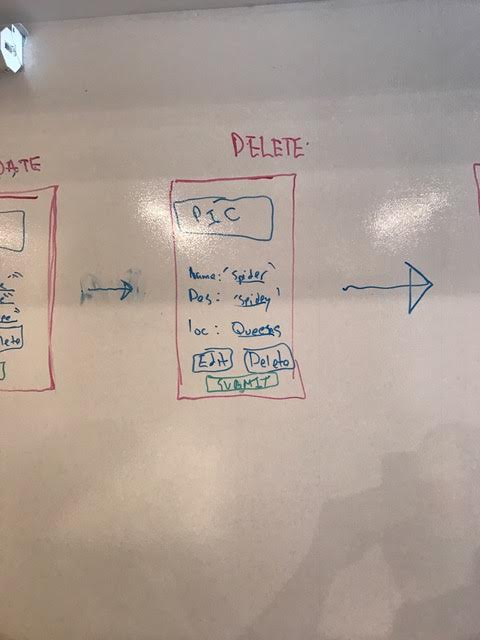 DATE
DELETE
PIC
Name: "Spider"
Des: 'Spidey'
loc: Queens
lete
Edit Delete
SUBMIT